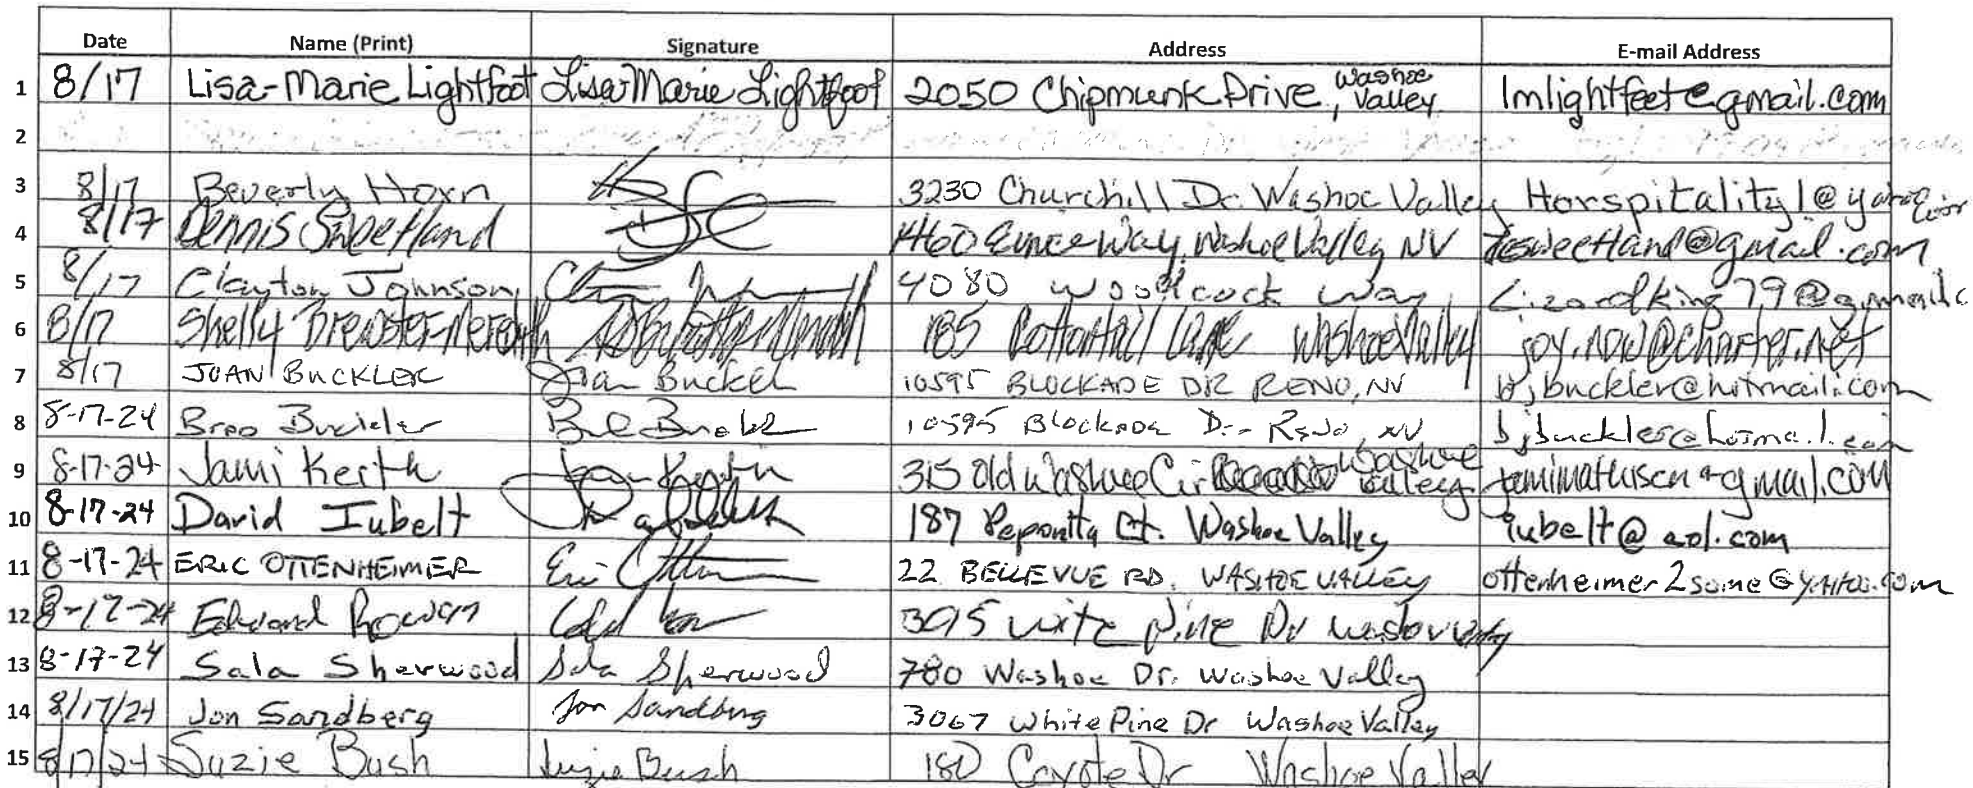 Date Name (Print) Signature Address E-mail Address
1 8/17 Lisa-Marie Lightfoot Lisa-Marie Lightfoot 2050 Chipmunk Drive, Washoe Valley lmlightfeet@gmail.com
2
3 8/17 Beverly Horn 3230 Churchill Dr. Washoe Valley Horspitality1@yahoo.com
4 8/17 Dennis Sweetland Way, Washoe Valley NV dsweetland@gmail.com
5 8/17 Clayton Johnson 4080 Woodcock Way Lizardking79@gmail.c
6 8/17 Shelly Brewster-Meredith 185 Cottontail Lane Washoe Valley joy.now@charter.net
7 8/17 JOAN BUCKLER Joan Buckler 10595 BLOCKADE DR RENO, NV bjbuckler@hotmail.com
8 8-17-24 Brad Buckler 10595 Blockade Dr. Reno, NV bjbuckler@hotmail.com
9 8-17-24 Jami Keith 315 Old Washoe Cir Washoe Valley
10 8-17-24 David Iubelt 187 Ct. Washoe Valley iubelt@aol.com
11 8-17-24 ERIC OTTENHEIMER 22 BELLEVUE RD. WASHOE VALLEY ottenheimer2some@yahoo.com
12 8-17-24 Edward Rowan Pine Dr
13 8-17-24 Sala Sherwood Sala Sherwood 780 Washoe Dr. Washoe Valley
14 8/17/24 Jon Sandberg Jon Sandberg 3067 White Pine Dr Washoe Valley
15 8/17/24 Suzie Bush Suzie Bush 180 Coyote Dr Washoe Valley